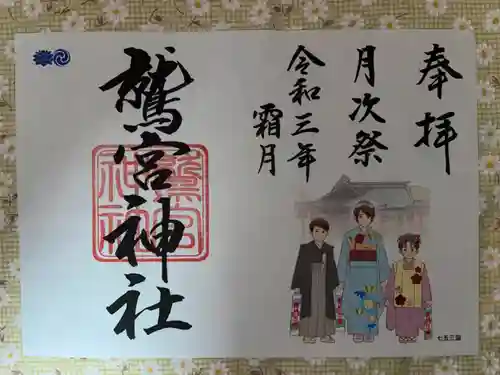 奉拝
月次祭
令和三年
霜月
鷲宮神社
鷲宮
神社
七五三詣